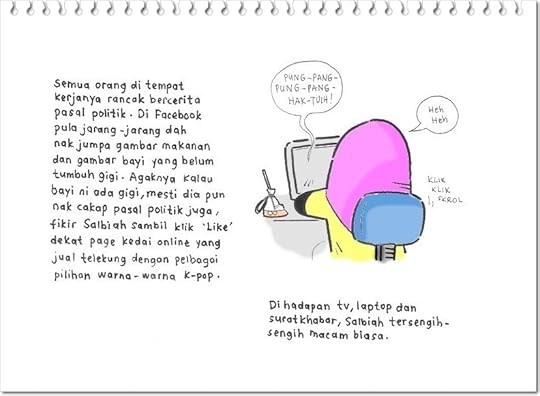 Semua orang di tempat
kerjanya rancak bercerita
pasal politik. Di Facebook
pula jarang-jarang dah
nak jumpa gambar makanan
dan gambar bayi yang belum
tumbuh gigi. Agaknya kalau
bayi ni ada gigi, mesti dia pun
nak cakap pasal politik juga,
fikir Salbiah sambil klik 'Like'
dekat page kedai online yang
jual telekung dengan pelbagai
pilihan warna-warna K-pop.
PUNG-PANG-
PUNG-PANG-
HAK-TUIH!
Heh
Heh
KLIK
KLIK
SKROL
Di hadapan tv, laptop dan
suratkhabar, Salbiah tersengih-
sengih macam biasa.